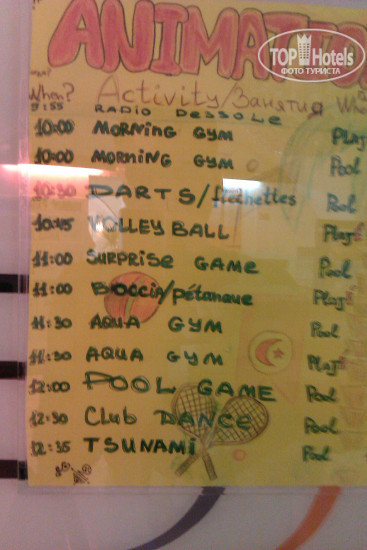 ANIMATIO
TOPHotels
ФОТО ТУРИСТА
When? Activity/Занятия Whe
9:55 RADIO DESSOLE
10:00 MORNING GYM PLAJ
10:00 MORNING GYM Pool
10:30 DARTS/fléthettes Pool
10:45 VOLLEY BALL Plaj
11:00 SURPRISE GAME Pool
11:00 BOCCIA/pétanque Plaj
11:30 AQUA GYM Pool
11:30 AQUA GYM Plaj
12:00 POOL GAME Pool
12:30 Club DANCE Pool
12:35 TSUNAMI Pool